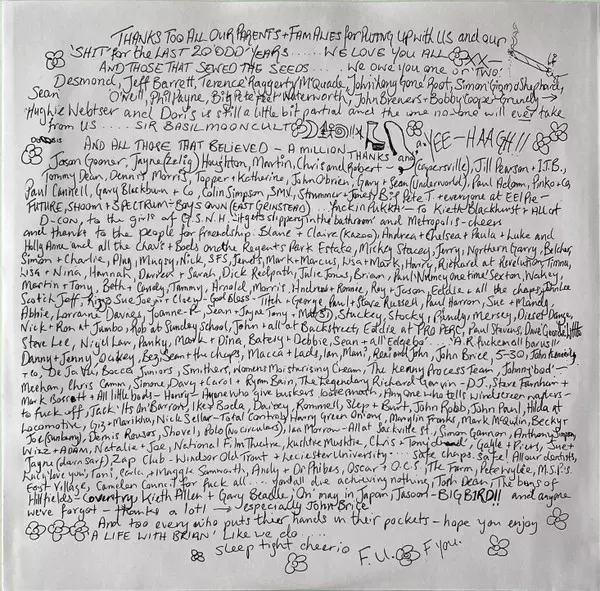 THANKS TOO ALL OUR PARENTS + FAMILIES for PUTTING UP WITH US and our
'SHIT' for the LAST 20 ODD YEARS ...... WE LOVE YOU ALL XX
AND THOSE THAT SEWED THE SEEDS .... We owe you one or two!
Desmond, Jeff Barrett, Terence 'Raggerty' McQuade, John 'Long Gone' Barrett, Simon 'Gizmo' Shepherd,
Sean O'Neill, Phil Payne, Big Pete Feet Waterworth, John Breners - Bobby Cooper Grundy →
Hughie Webster and Doris is still a little bit partial and the one no-one will ever take
from US ..... SIR BASIL MOONCULT YEE-HAAGH!!
AND ALL THOSE THAT BELIEVED - A MILLION THANKS and
Jason Gooner, Jayne (zelig) Houghton, Martin, Chris and Robert - (capersville), Jill Pearson + I.I.B.,
Tommy Dean, Dennis Morris, Topper + Katherine, John O'Brien, Gary + Sean (Underworld), Paul Adam, Pinko + Co,
Paul Cantrell, Gary Blackburn + Co, Colin Simpson, SMV, Strummer + Jones, Big Pete T + everyone at EEL Pie -
FUTURE, SHOOM + SPECTRUM - BOYS OWN (EAST GRINSTEAD) ... fuckin Pukkk - To Kieth Blackhurst + ALL at
D-CON, to the girls of G.S.N.H. - it gets slippery in the bathroom and Metropolis - cheers
and thankz to the people for friendship. Blane + Claire (Kazoo), Andrea + Chelsea + Paula + Luke and
Holly Anne and all the chaps + Bods on the Regents Park Estate, Mickey Stacey, Jerry, Northern Garry, Belcher,
Simon + Charlie, Plug, Mugsy, Nick, SFS, Jends, Mark + Marcus, Lisa + Mark, Harry, Richard at Revolution, Tinna,
Lisa + Nina, Hannah, Darren + Sarah, Dick Redpath, Julie Jones, Brian, Paul Nutney one time Sexton, Wakey,
Martin + Tony, Beth + Candey, Tammy, Arnold, Morris, Andrew + Ronnie, Roy + Jason, Eddie + all the chaps, Dunlee
Scotch Jeff, Rizzo Sue Joe + Cloey - God Bless - Titch + George, Paul + Steve Russell, Paul Harron, Sue + Mandy,
Abbie, Lorraine Davies, Joanne-R, Sean + Jayne Tony - Stuckey, Stocky, Pundy, Mersey, Dieset Danye,
Nick + Ron at Jumbo, Rob at Sunday School, John + all at Backstreet, Eddie at PRO PERC, Paul Stevens, Dave 'Goodie' Little
Steve Lee, Nigel Law, Panky, Mark + Dina, Batery + Debbie, Sean + all Edgebo ... 'A.R fuckemell barus!!
Danny + Jenny Oakey, Bez, Sean + the chaps, Macca + Lads, Ian, Mani, Reni and John, John Brice, 5-30, John Kennedy
+ Co, De Ja Vu, Bocca Juniors, Smithers, Nomens Moisturising Cream, The Kenny Process Team, Johnny 'bod' -
Meehan, Chris Camm, Simone, Davy + Carol + Rynn Bain, The Legendary Richard Garvin - D.J., Steve Farnham +
Mark Bossett + All little bods - Henry - Anyone who give buskers loose monies, Anyone who tells windscreen wipers -
to fuck off, 'Jack' 'Its on' Barron, Ikey Boda, Daisey, Rommell, Slept + Burt, John Robb, John Paul, Hilda at
Locomotive, Giz + Marikha, Nick Sellar - Total Control, Harry Green Onions, Manglin Franks, Mark McQuilin, Becky +
Joe (Sunbany), Demis Rousos, Shovel, Polo (No circulars) Ina Morrow - All at Jackville st, Simon Gannon, Anthony Draper,
Wizz + Adam, Natalie + Joe, National Film Theatre, Kushtie Muskhie, Chris + Tony and, Gayle + Piers, Sue +
Jayne (darn sarf), Zap Club + Windsor Old Trout + Leciester University .... safe chaps. Safe! All our dentists,
Luci love you, Toni, Perlie + Maggie Simmorth, Andy + Dr Phibes, Oscar + O.C.S, The Farm, Pete Wylie, M.S.P.s
East Village, Camden Council for fuck all .... You'll die achieving nothing, Tosh Dean, The boys of
Hillfields - Coventry, Kieth Allen + Gary Beadle, On' may in Japan, Jasoon - BIG BIRD!! and anyone
we've forgot - thanks a lot! → especially John Brice
And too every who puts their hands in their pockets - hope you enjoy
'A LIFE WITH BRIAN' Like we do ....
sleep tight cheerio F.U. F you.